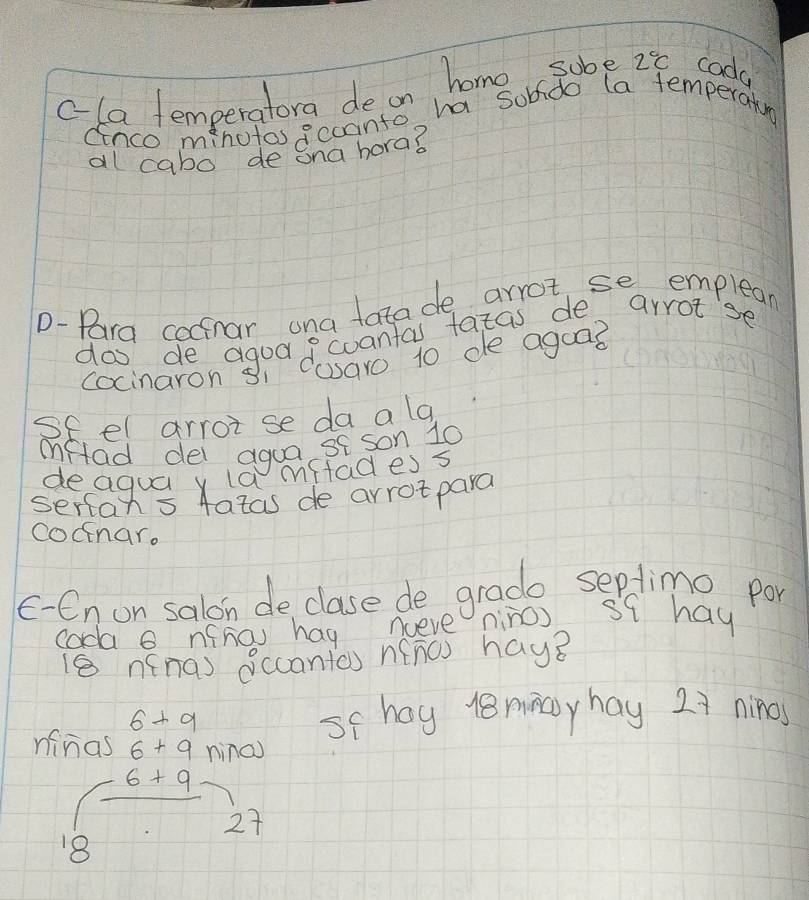 C-la temperatora de on horno sube 2°c cada
cinco minotos ¿ccanto ha sobido la temperatura
al cabo de ona hora?
D- Para cocinar ona taza de arroz se emplean
dos de agoa ¿cuantas tazas de arroz se
cocinaron si cusaro 10 de agoa?
si el arroz se da a la
mitad del agua si son 10
de agua y la mitad es 5
serían 5 tazas de arroz para
cocinar.
E-En on salón de clase de grado septimo por
cada 6 niñas hay nueve niños si hay
18 niñas ¿ccantos niños hay?
6 + 9
niñas 6 + 9 ninos si hay 18 niñas y hay 27 ninos
6 + 9
18 27